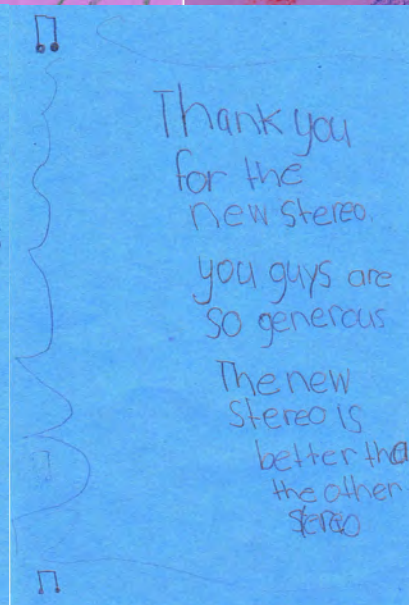 Thank you
for the
new stereo.
you guys are
so generous
The new
Stereo is
better tha
the other
stereo